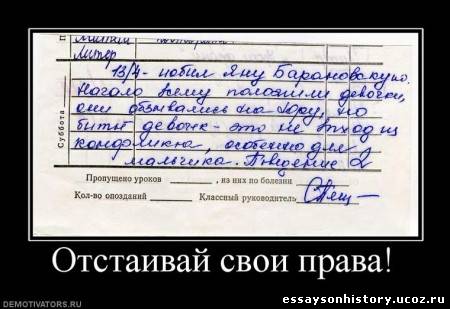 Литер
13/4 - побил Яну Барановскую.
Начало этому положили девочки,
они обзывались на Юру, но
битьё девочек - это не выход из
конфликта, особенно для
мальчика. Поведение 2
Суббота
Пропущено уроков ______ , из них по болезни ______
Кол-во опозданий ______ Классный руководитель
Отстаивай свои права!
DEMOTIVATORS.RU
essaysonhistory.ucoz.ru